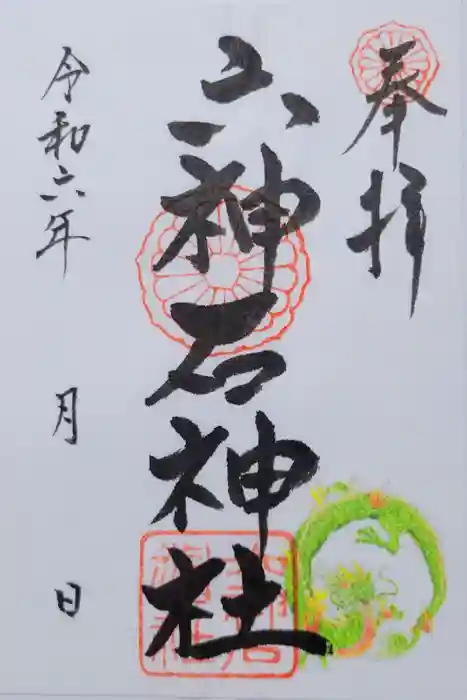 奉拝
六神石神社
令和六年 月 日